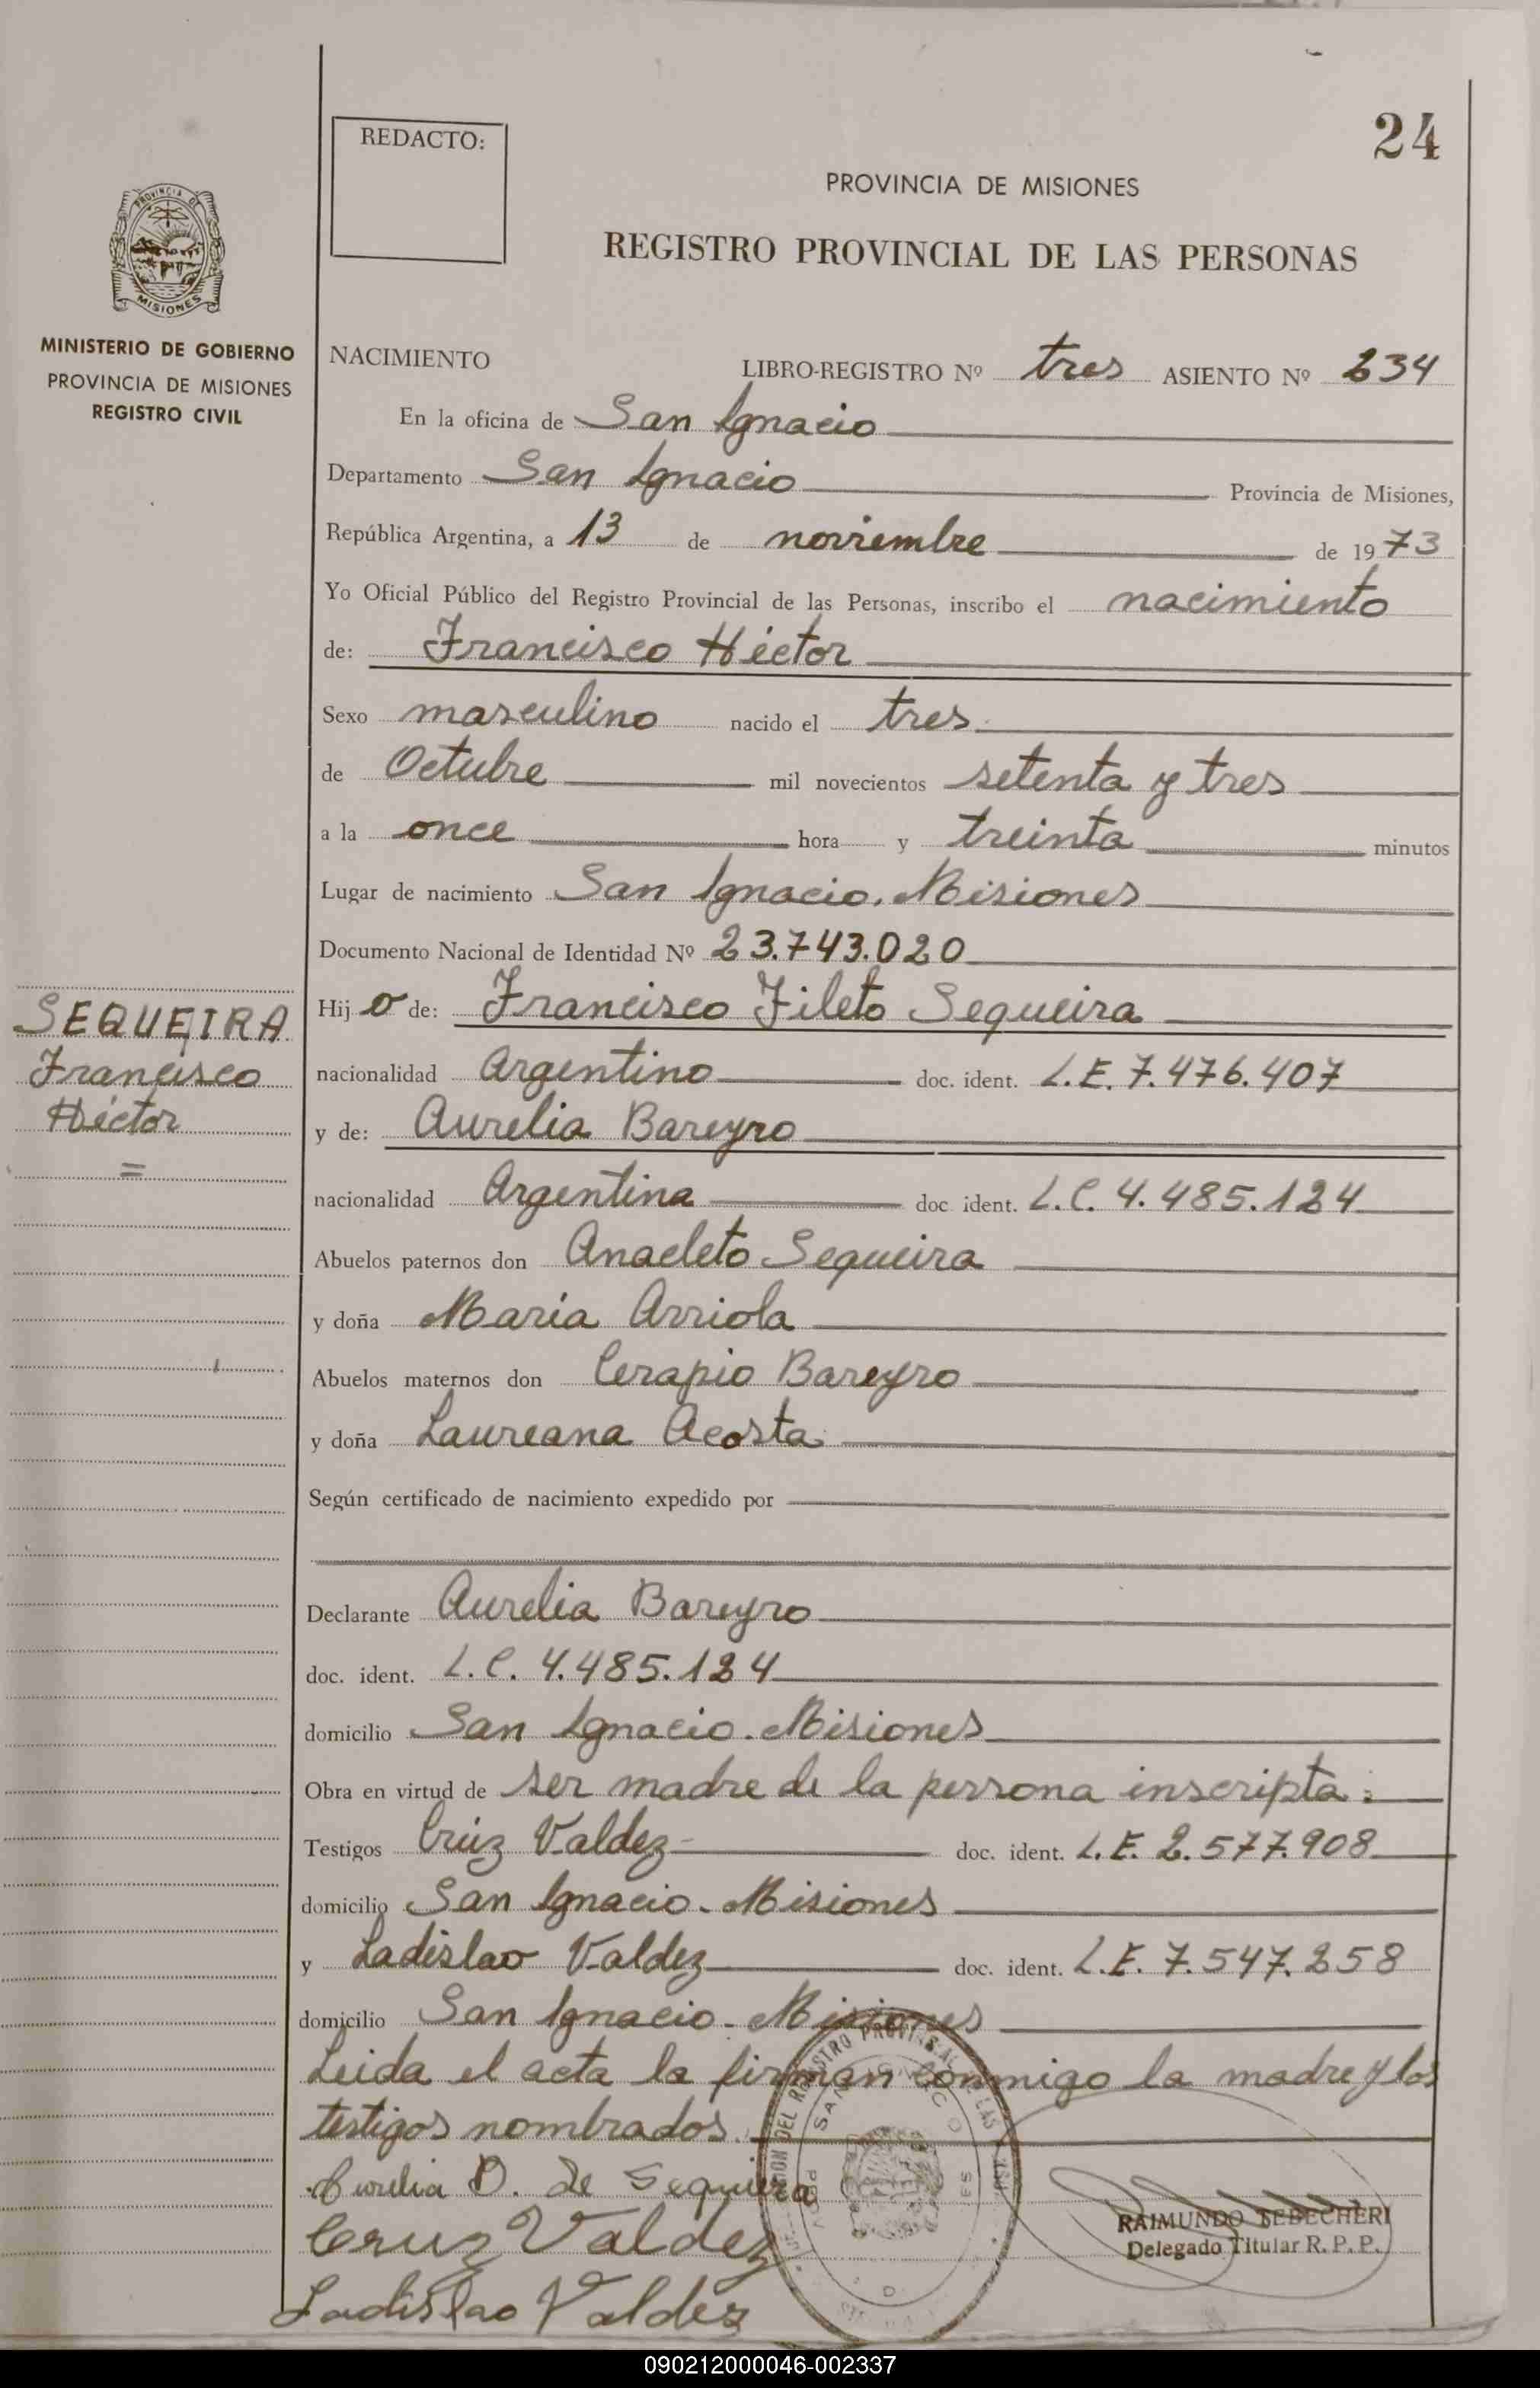 24
REDACTO:
PROVINCIA DE MISIONES
REGISTRO PROVINCIAL DE LAS PERSONAS
PROVINCIA DE
MISIONES
MINISTERIO DE GOBIERNO
PROVINCIA DE MISIONES
REGISTRO CIVIL
NACIMIENTO LIBRO-REGISTRO Nº tres ASIENTO Nº 234
En la oficina de San Ignacio
Departamento San Ignacio Provincia de Misiones,
República Argentina, a 13 de noviembre de 1973
Yo Oficial Público del Registro Provincial de las Personas, inscribo el nacimiento
de: Francisco Héctor
Sexo masculino nacido el tres
de Octubre mil novecientos setenta y tres
a la once hora y treinta minutos
Lugar de nacimiento San Ignacio. Misiones
Documento Nacional de Identidad Nº 23.743.020
SEQUEIRA
Francisco
Héctor
=
Hijo de: Francisco Fileto Sequeira
nacionalidad Argentino doc. ident. L.E. 7.476.407
y de: Aurelia Bareyro
nacionalidad Argentina doc ident. L.C. 4.485.124
Abuelos paternos don Anacleto Sequeira
y doña María Arriola
Abuelos maternos don Cerapio Bareyro
y doña Laureana Acosta
Según certificado de nacimiento expedido por
Declarante Aurelia Bareyro
doc. ident. L.C. 4.485.124
domicilio San Ignacio. Misiones
Obra en virtud de ser madre de la persona inscripta.
Testigos Crúz Valdez doc. ident. L.E. 2.577.908
domicilio San Ignacio. Misiones
y Ladislao Valdez doc. ident. L.E. 7.547.258
domicilio San Ignacio. Misiones
Leida el acta la firman conmigo la madre y los
testigos nombrados.
Aurelia B. de Sequiera
Cruz Valdez
Ladislao Valdez
RAIMUNDO TEBECHERI
Delegado Titular R. P. P.
090212000046-002337